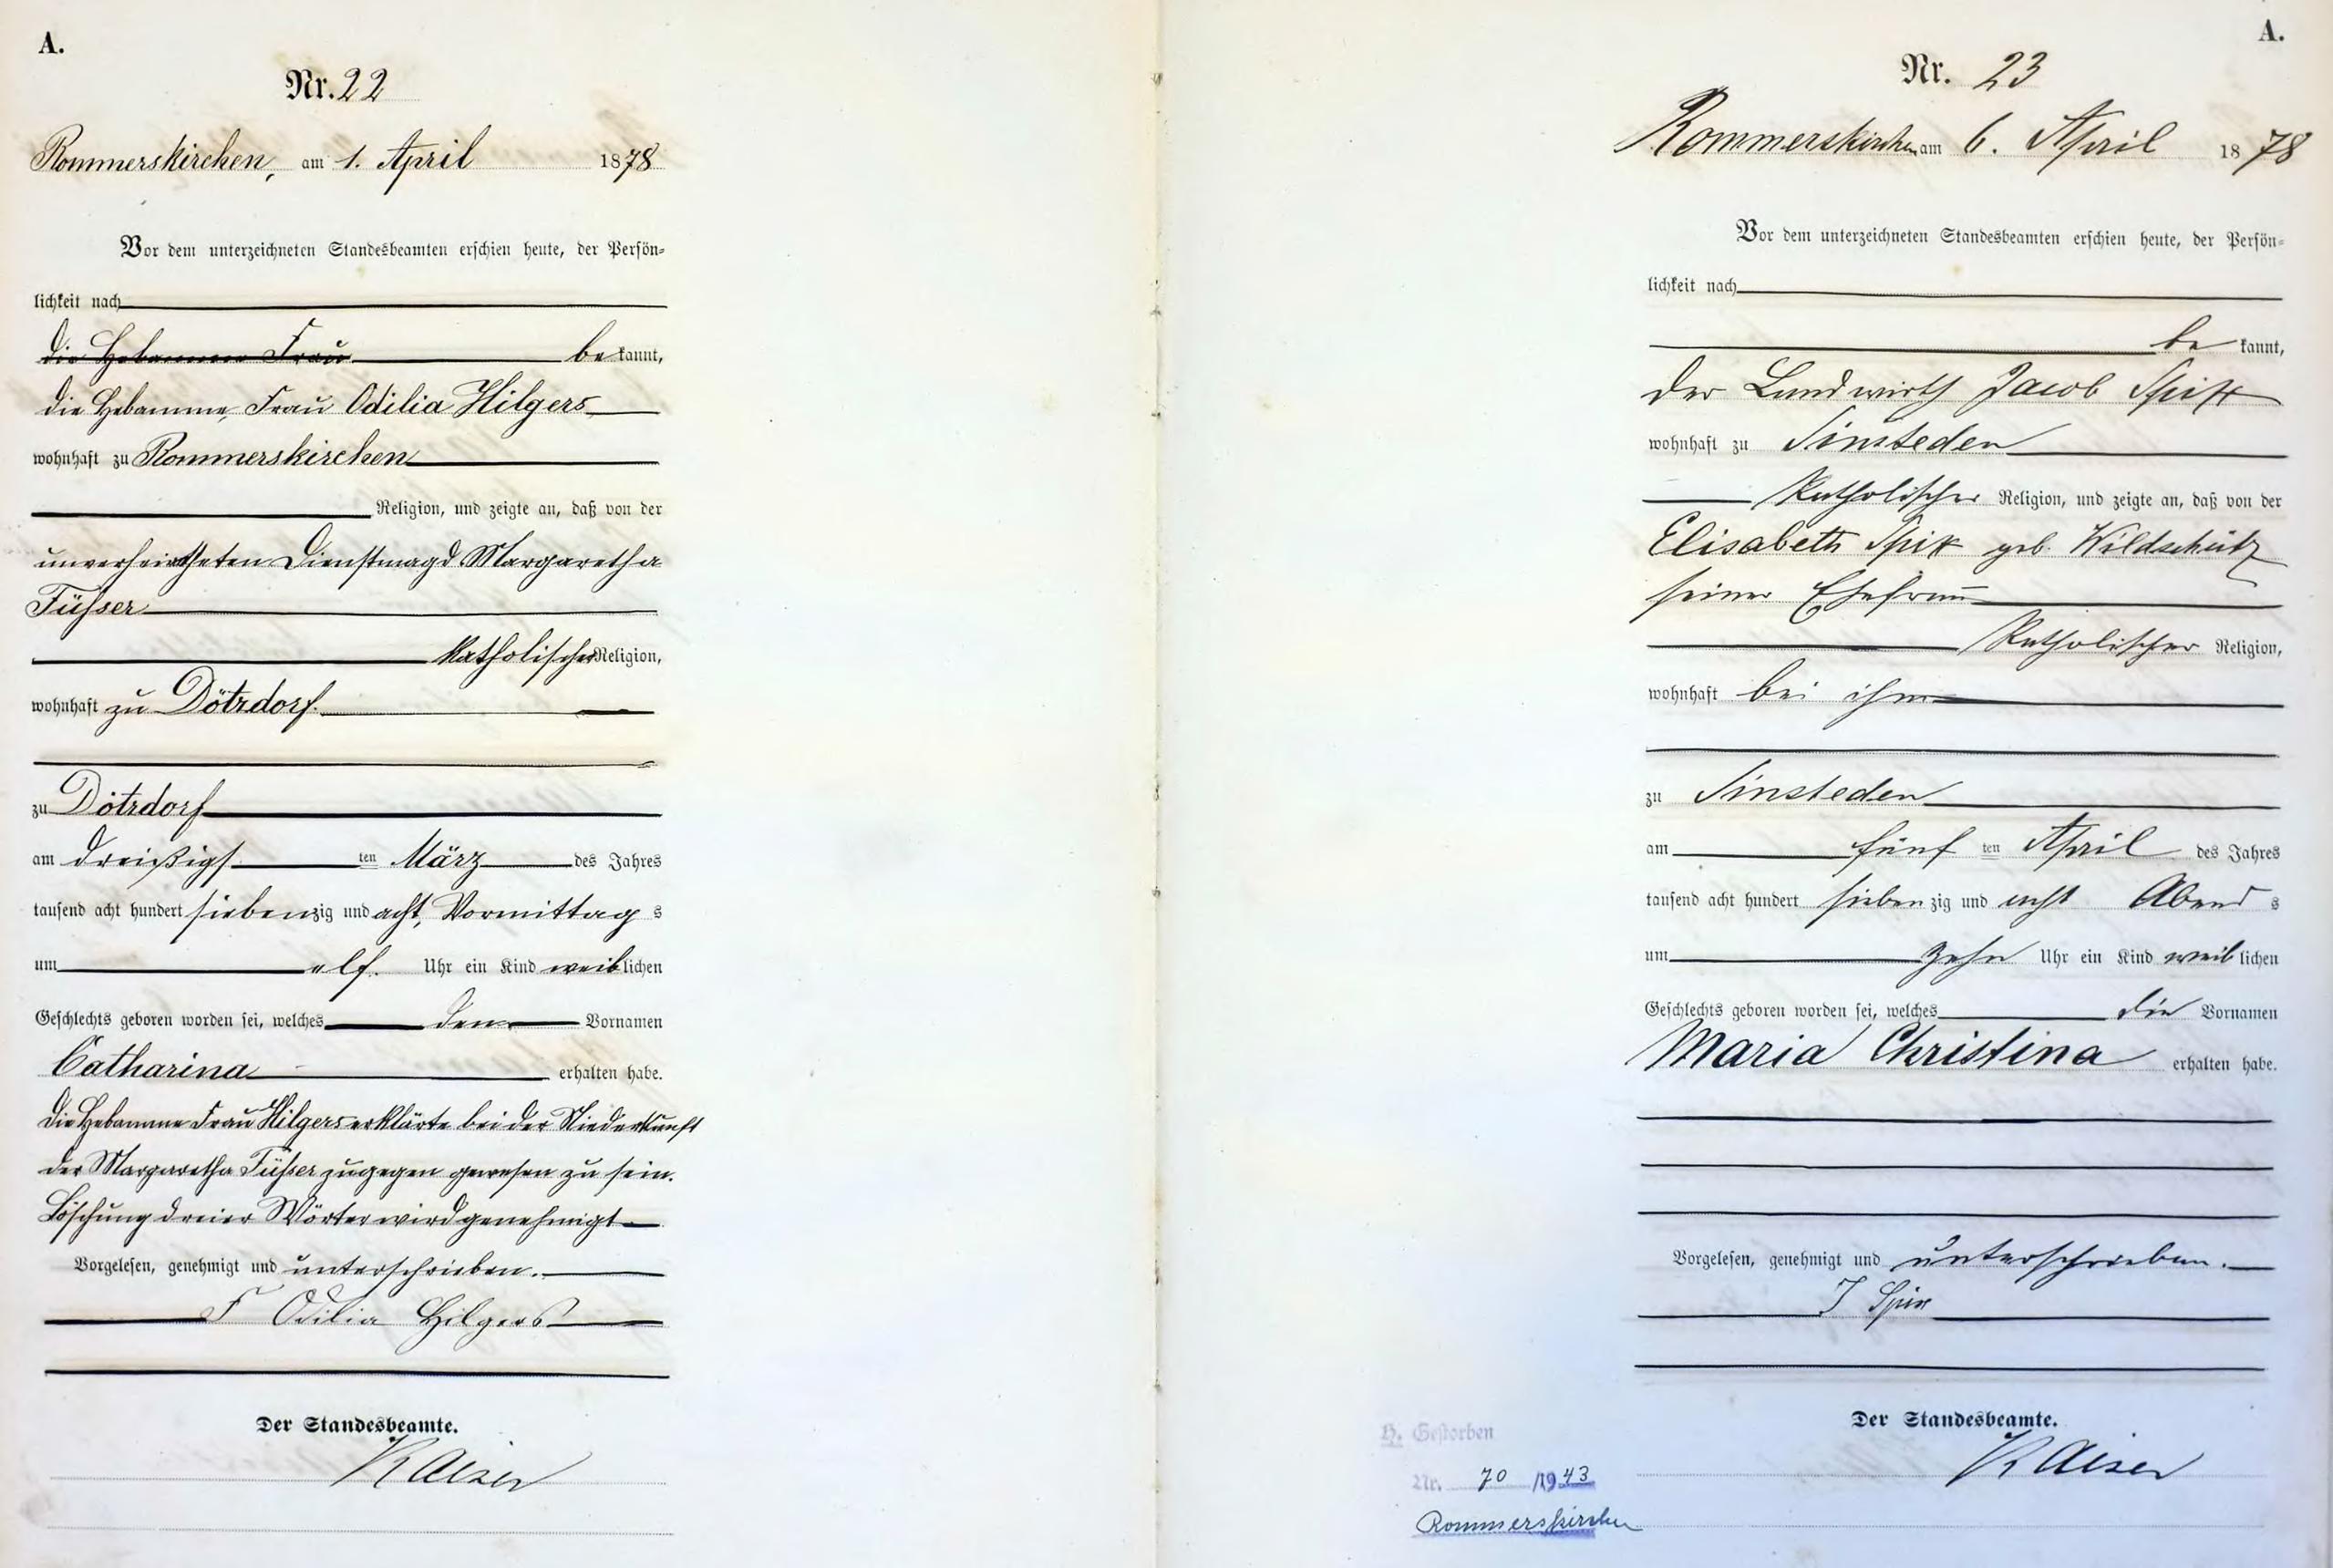 A.
Nr. 22
Rommerskirchen, am 1. April 1878
Vor dem unterzeichneten Standesbeamten erschien heute, der Persön-
lichkeit nach
die Hebamme Frau bekannt,
die Hebamme, Frau Odilia Hilgers
wohnhaft zu Rommerskirchen
Religion, und zeigte an, daß von der
unverheiratheten Dienstmagd Margaretha
Füsser
katholischer Religion,
wohnhaft zu Dötzdorf
zu Dötzdorf
am dreißigsten März des Jahres
tausend acht hundert siebenzig und acht, Vormittags
um elf. Uhr ein Kind weiblichen
Geschlechts geboren worden sei, welches den Vornamen
Catharina erhalten habe.
Die Hebamme Frau Hilgers erklärte bei der Niederkunft
der Margaretha Füsser zugegen gewesen zu sein.
Löschung dreier Wörter wird genehmigt
Vorgelesen, genehmigt und unterschrieben.
F Odilia Hilgers
Der Standesbeamte.
Kaiser
A.
Nr. 23
Rommerskirchen am 6. April 1878
Vor dem unterzeichneten Standesbeamten erschien heute, der Persön-
lichkeit nach
bekannt,
der Landwirth Jacob
wohnhaft zu Sinsteden
katholischer Religion, und zeigte an, daß von der
Elisabeth geb. Wildschütz
seiner Ehefrau
katholischer Religion,
wohnhaft bei ihm
zu Sinsteden
am fünften April des Jahres
tausend acht hundert siebenzig und acht Abends
um zehn Uhr ein Kind weiblichen
Geschlechts geboren worden sei, welches die Vornamen
Maria Christina erhalten habe.
Vorgelesen, genehmigt und unterschrieben.
J
Der Standesbeamte.
Kaiser
H. Gestorben
Nr. 70 /1943
Rommerskirchen